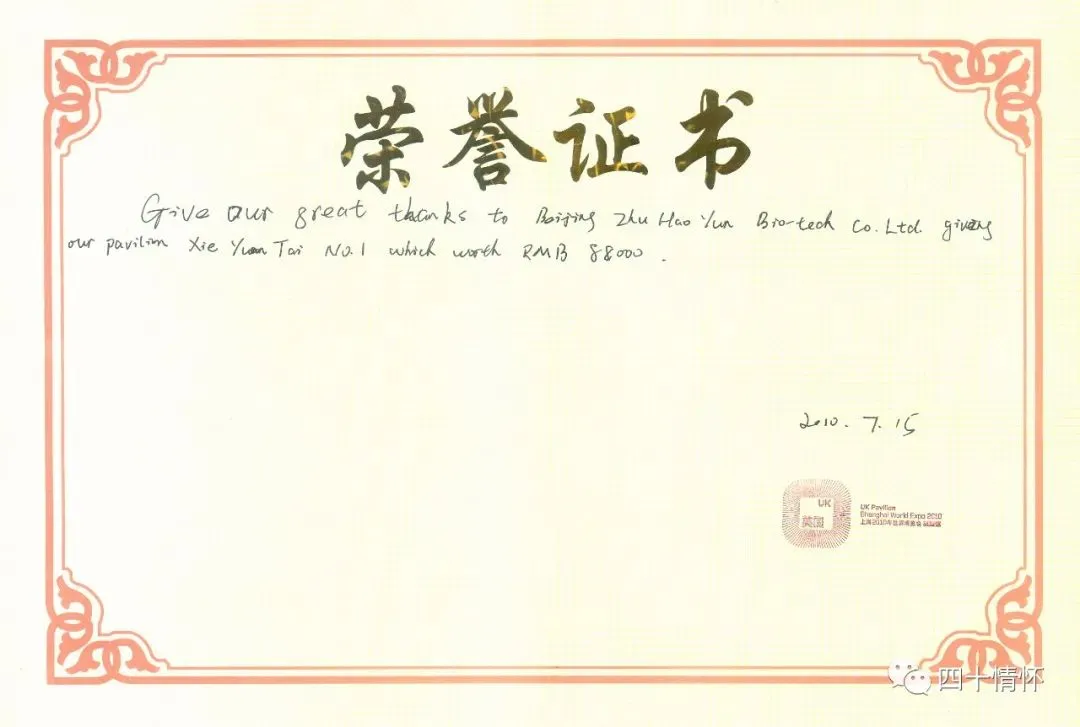 荣誉证书
Give our great thanks to Beijing Zhu Hao Yun Bio-tech Co.Ltd. giving
our pavilion Xie Yuan Tai No.1 which worth RMB 88000.
2010. 7. 15
UK
英国
UK Pavilion
Shanghai World Expo 2010
上海2010年世界博览会 英国馆
四十情怀